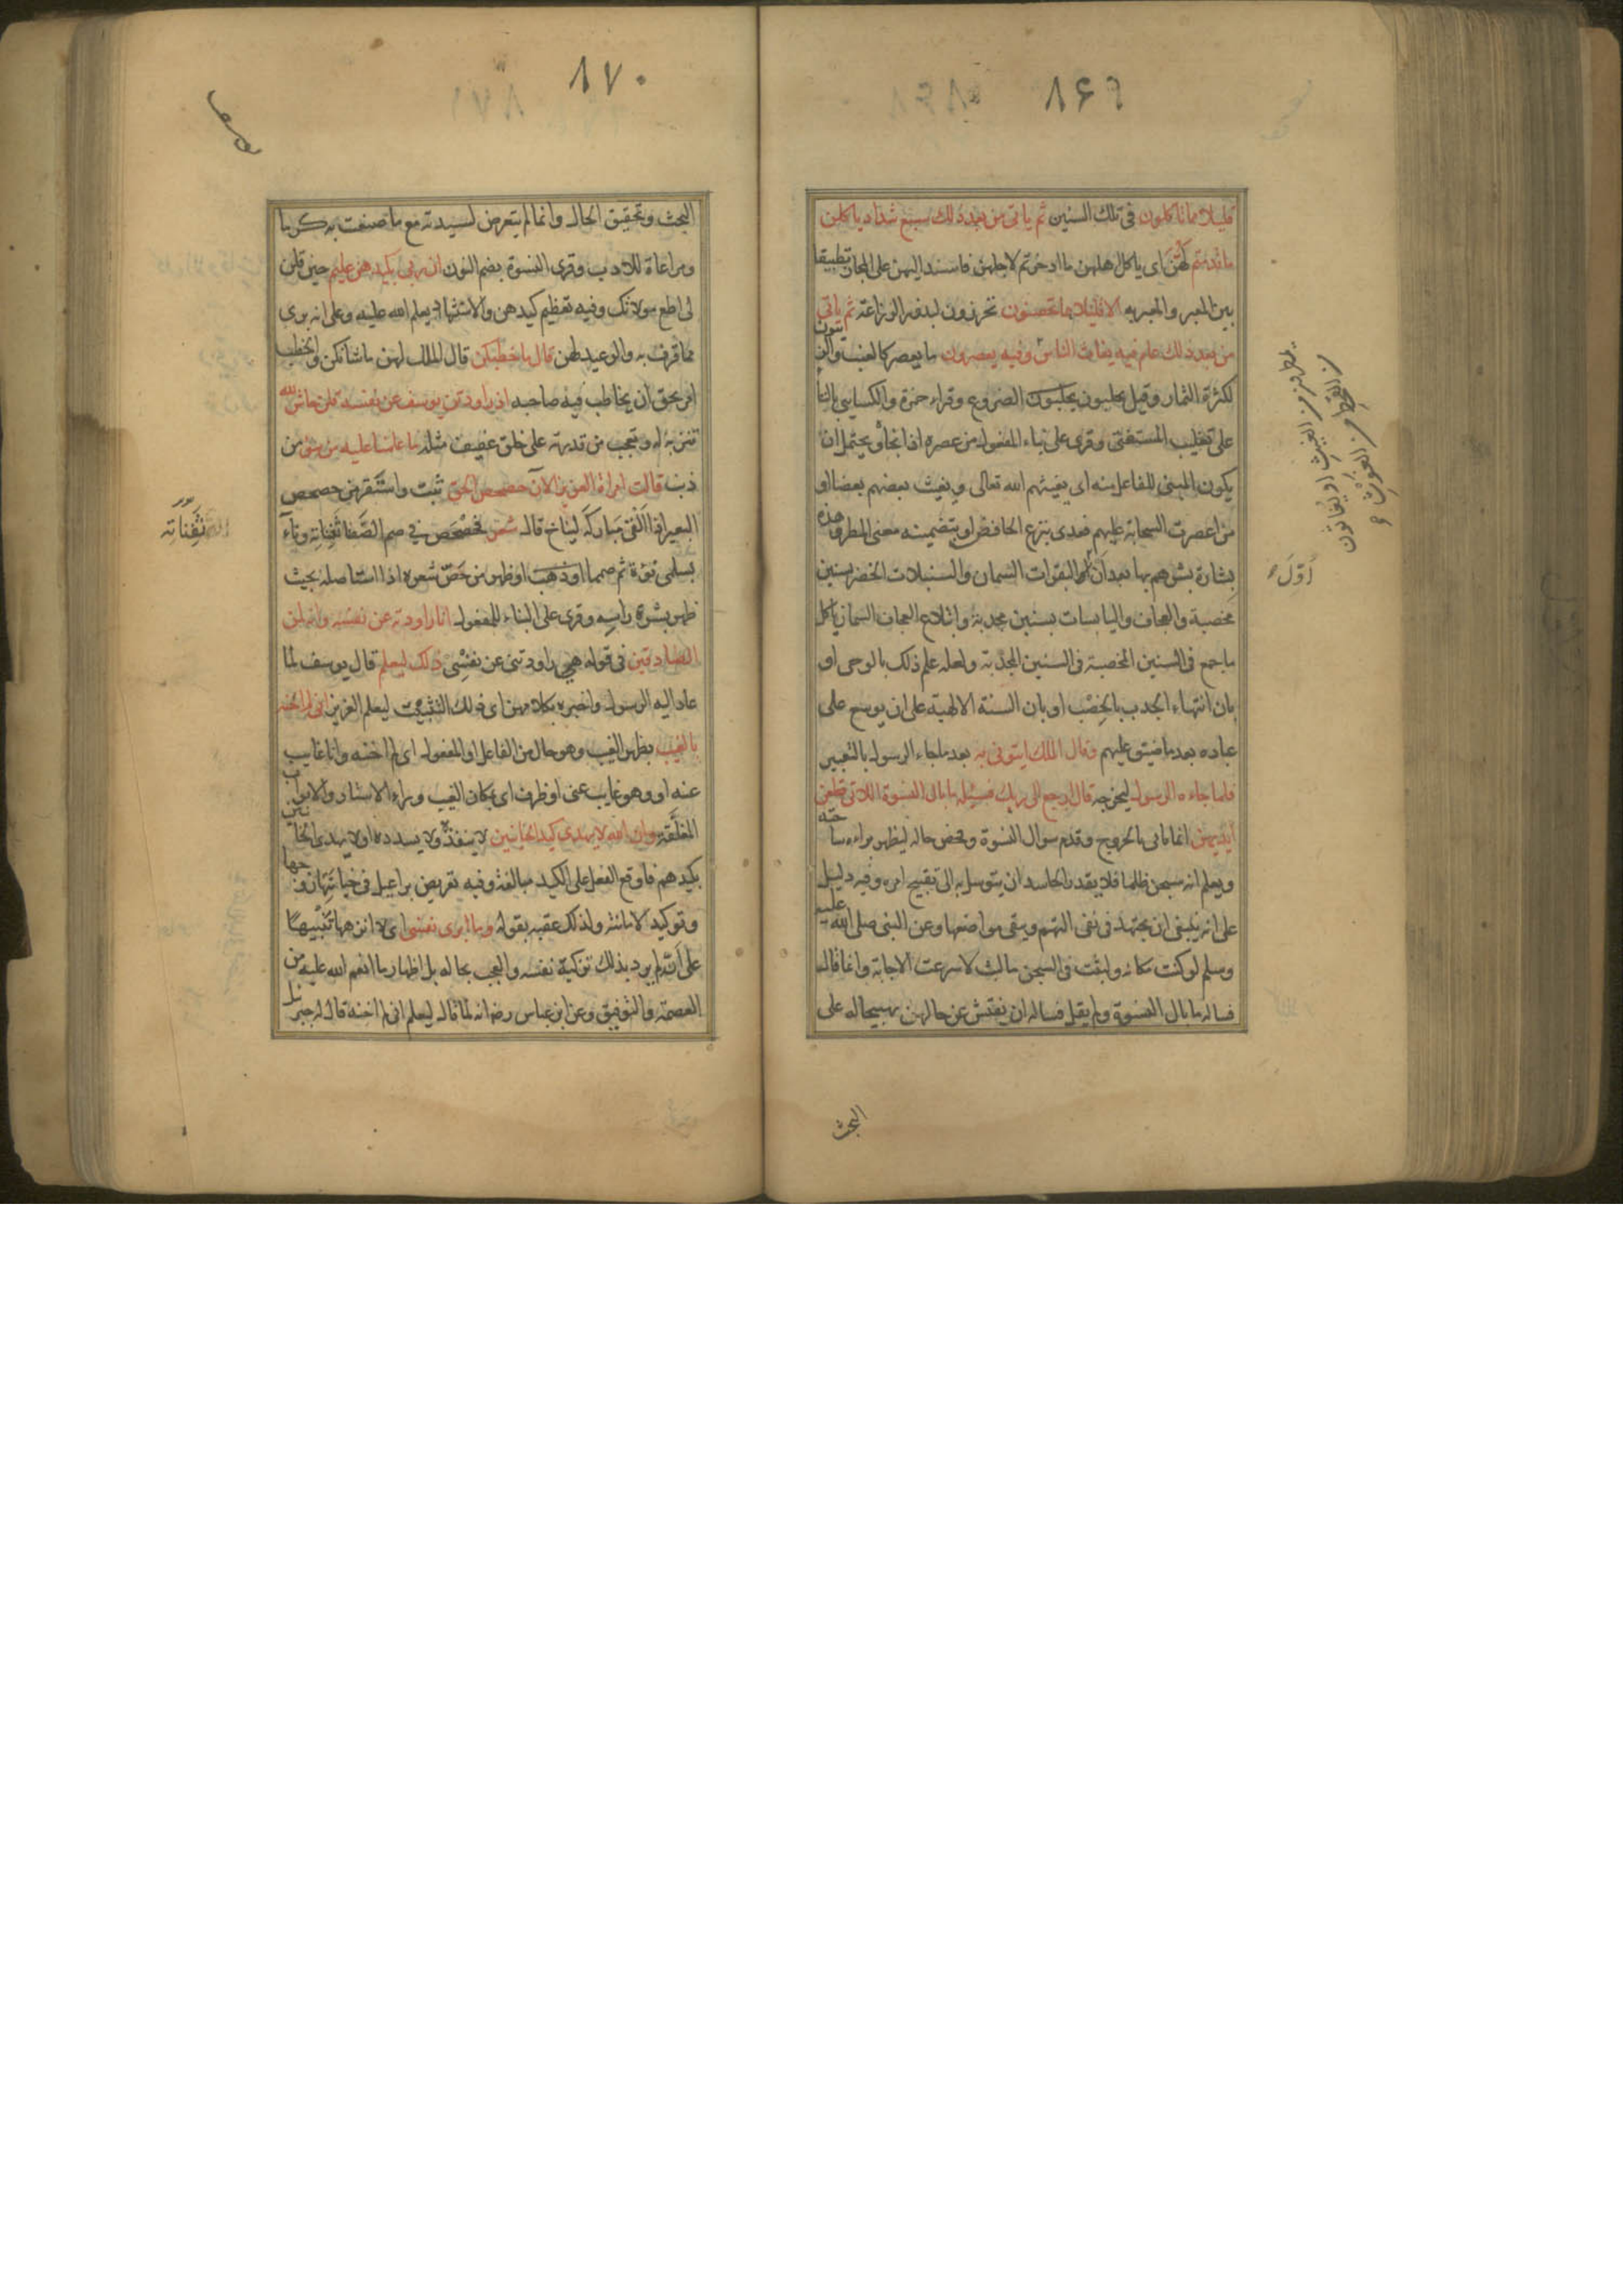 ٨۶٩
قليلا مما تاكلون فى تلك السنين ثم ياتى من بعد ذلك سبع شداد ياكلن
ما قدمتم لهن اى ياكل اهلهن ما ادخرتم لاجلهن فاسند اليهن على المجاز تطبيقا
بين المعبر والمعبر به الا قليلا مما تحصنون تحرزون لبذور الزراعة ثم ياتى
من بعد ذلك عام فيه يغاث الناس وفيه يعصرون ما يعصر كالعنب والزيتون
لكثرة الثمار وقيل يحلبون الضروع وقراء حمزة والكسايى بالتا
على تغليب المستفتى وقرى على بناء المفعول من عصره اذا انجاه ويحتمل ان
يكون المبنى للفاعل منه اى يغيثهم الله تعالى ويغيث بعضهم بعضا او
من اعصرت السحابة عليهم فعدى بنزع الخافض او بتضمينه معنى المطر وهذه
بشارة بشرهم بها بعد ان اول البقرات السمان والسنبلات الخضر بسنين
مخصبة والعجاف واليابسات بسنين مجدبة وابتلاع العجاف السمان باكل
ما جمع فى السنين المخصبة فى السنين المجدبة ولعله علم ذلك بالوحى او
بان انتهاء الجدب بالخصب او بان السنة الالهية على ان يوسع على
عباده بعد ما ضيق عليهم وقال الملك ايتونى به بعد ما جاء الرسول بالتعبير
فلما جاءه الرسول ليخرجه قال ارجع الى ربك فسئله ما بال النسوة اللاتى قطعن
ايديهن انما تانى بالخروج وقدم سوال النسوة وفحص حاله ليظهر براءة ساحته
ويعلم انه سجن ظلما فلا يقدر الحاسد ان يتوسل به الى تقبيح امره وفيه دليل
على انه ينبغى ان يجتهد فى نفى التهم ويتقى مواضعها وعن النبى صلى الله عليه
وسلم لو كنت مكانه ولبثت فى السجن ما لبث لاسرعت الاجابة وانما قال
فساله ما بال النسوة ولم يقل فساله ان يفتش عن حالهن تهييجا له على
البحث
يمطرون من الغيث او يغاثون
من القحط من الغوث
اوّل
٨٧٠
البحث وتحقيق الحال وانما لم يتعرض لسيدته مع ما صنعت به كرما
ومراعاة للادب وقرى النسوة بضم النون ان ربى بكيدهن عليم حين قلن
لى اطع مولاتك وفيه تعظيم كيدهن والاستشهاد بعلم الله عليه وعلى انه برى
مما قرف به والوعيد لهن قال ما خطبكن قال الملك لهن ما شانكن والخطب
امر يحق ان يخاطب فيه صاحبه اذ راودتن يوسف عن نفسه قلن حاش لله
تنزيه له وتعجب من قدرته على خلق عفيف مثله ما علمنا عليه من سؤ من
ذنب قالت امراة العزيز الآن حصحص الحق ثبت واستقر من حصحص
البعير اذا القى مباركه ليناخ قال شعر فحصحص فى صم الصفا ثفناته وناء
بسلمى نوءة ثم صمما او ظهر من حص شعره اذا استاصله بحيث
ظهر بشرة راسه وقرى على البناء للمفعول انا راودته عن نفسه وانه لمن
الصادقين فى قوله هى راودتنى عن نفسى ذلك ليعلم قال يوسف لما
عاد اليه الرسول واخبره بكلامهن اى ذلك التثبت ليعلم العزيز انى لم اخنه
بالغيب بظهر الغيب وهو حال من الفاعل او المفعول اى لم اخنه وانا غايب
عنه او وهو غايب عنى او ظرف اى بمكان الغيب وراء الاستار والابواب
المغلقة وان الله لا يهدى كيد الخاينين لا ينفذه ولا يسدده او لا يهدى الخاينين
بكيدهم فاوقع الفعل على الكيد مبالغة وفيه تعريض براعيل فى خيانتها زوجها
وتوكيد لامانته ولذلك عقبه بقوله وما ابرى نفسى اى لا انزهها تنبيها
على انه لم يرد بذلك تزكية نفسه والعجب بحاله بل اظهار ما انعم الله عليه من
العصمة والتوفيق وعن ابن عباس رض انه لما قال ليعلم انى لم اخنه قال له جبريل
ثفناته